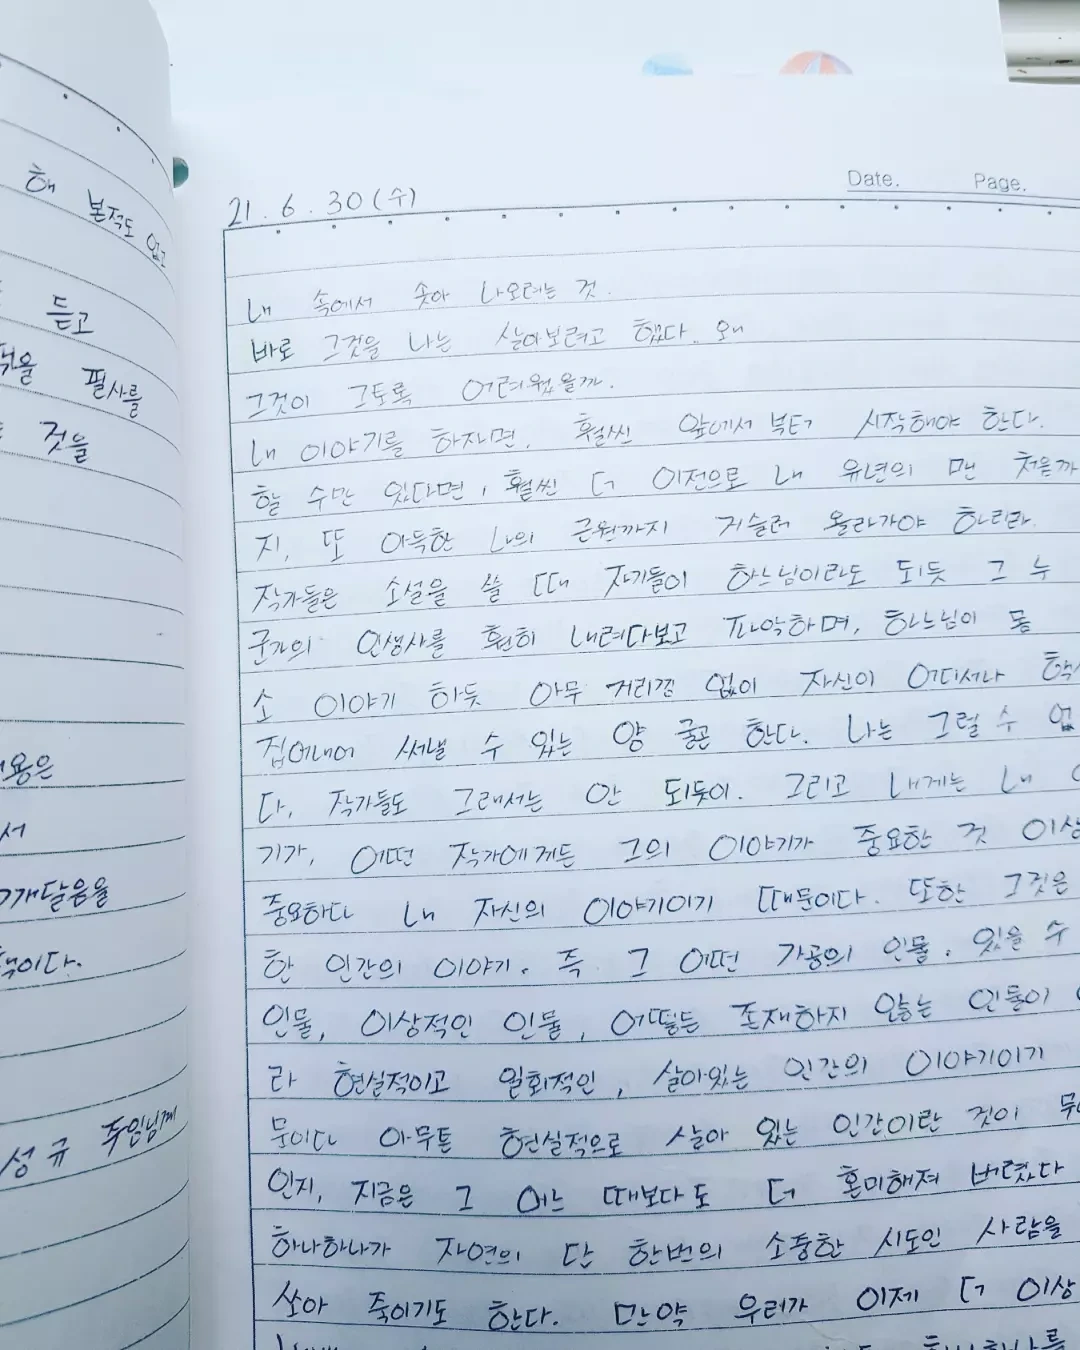 해 본적도 없고
듣고
필사를
것을
서
성규 주임님께
Date. Page.
21. 6. 30 (수)
내 속에서 솟아 나오려는 것.
바로 그것을 나는 살아보려고 했다. 왜
그것이 그토록 어려웠을까.
내 이야기를 하자면, 훨씬 앞에서 부터 시작해야 한다.
할 수만 있다면, 훨씬 더 이전으로 내 유년의 맨 처음까
지, 또 아득한 나의 근원까지 거슬러 올라가야 하리라.
작가들은 소설을 쓸 때 자기들이 하느님이라도 되듯 그 누
군가의 인생사를 훤히 내려다보고 파악하며, 하느님이 몸
소 이야기 하듯 아무 거리낌 없이 자신이 어디서나 핵
집어내어 써낼 수 있는 양 굴곤 한다. 나는 그럴 수 없
다, 작가들도 그래서는 안 되듯이. 그리고 내게는 내
기가, 어떤 작가에게든 그의 이야기가 중요한 것 이상
중요하다 내 자신의 이야기이기 때문이다. 또한 그것은
한 인간의 이야기. 즉 그 어떤 가공의 인물, 있을 수
인물, 이상적인 인물, 어떻든 존재하지 않는 인물이
라 현실적이고 일회적인, 살아있는 인간의 이야기이기
문이다 아무튼 현실적으로 살아 있는 인간이란 것이
인지, 지금은 그 어느 때보다도 더 혼미해져 버렸다
하나하나가 자연의 단 한번의 소중한 시도인 사람을
쏘아 죽이기도 한다. 만약 우리가 이제 더 이상